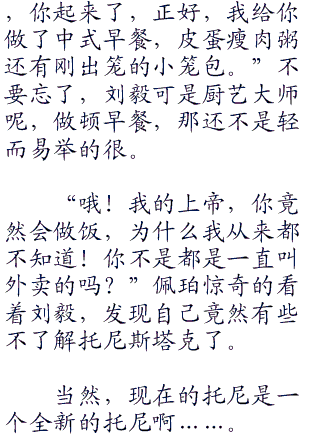 ，你起来了，正好，我给你
做了中式早餐，皮蛋瘦肉粥
还有刚出笼的小笼包。”不
要忘了，刘毅可是厨艺大师
呢，做顿早餐，那还不是轻
而易举的很。
“哦！我的上帝，你竟
然会做饭，为什么我从来都
不知道！你不是都是一直叫
外卖的吗？”佩珀惊奇的看
着刘毅，发现自己竟然有些
不了解托尼斯塔克了。
当然，现在的托尼是一
个全新的托尼啊……。